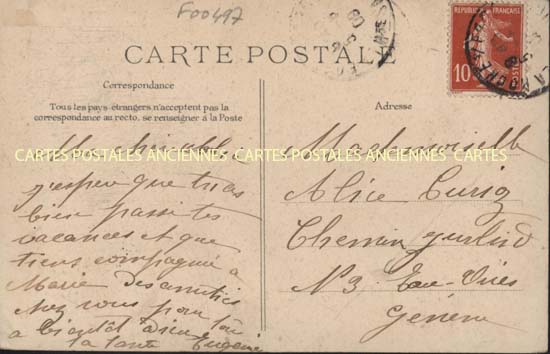 F00497
CARTE POSTALE
RÉPUBLIQUE FRANÇAISE
10
Correspondance
Tous les pays étrangers n'acceptent pas la
correspondance au recto, se renseigner à la Poste
Adresse
CARTES POSTALES ANCIENNES CARTES POSTALES ANCIENNES CARTES
Ma chère
j'espère que tu as
bien passé tes
vacances et que
tiens compagnie à
Marie
chez vous pour
a bientôt
ta tante Eugénie
Mademoiselle
Alice
Chemin
N° 3 Eaux-Vives
Genève